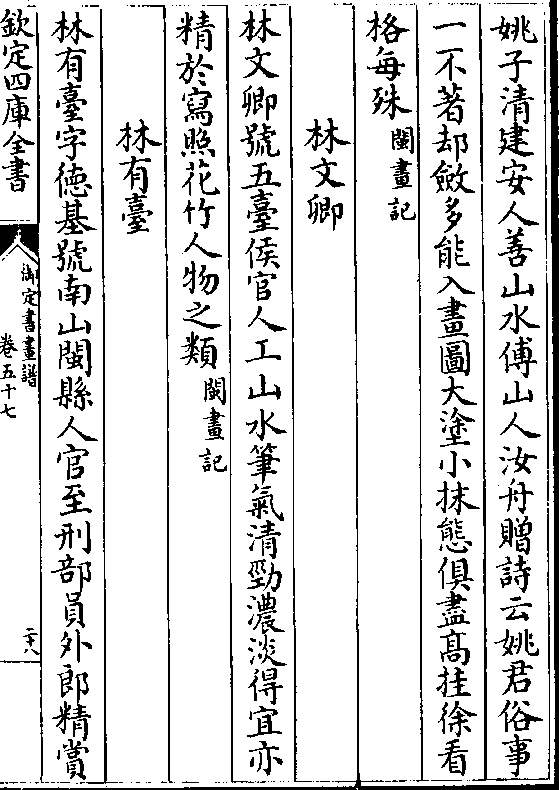 姚子清建安人善山水傅山人汝舟贈詩云姚君俗事
一不著却斂多能入畫圖大塗小抹態俱盡髙挂徐看
格每殊閩畫記
林文卿
林文卿號五臺侯官人工山水筆氣清勁濃淡得宜亦
精於寫照花竹人物之類閩畫記
林有臺
林有臺字德基號南山閩縣人官至刑部員外郎精賞
欽定四庫全書
御定書畫譜
卷五十七
二十八